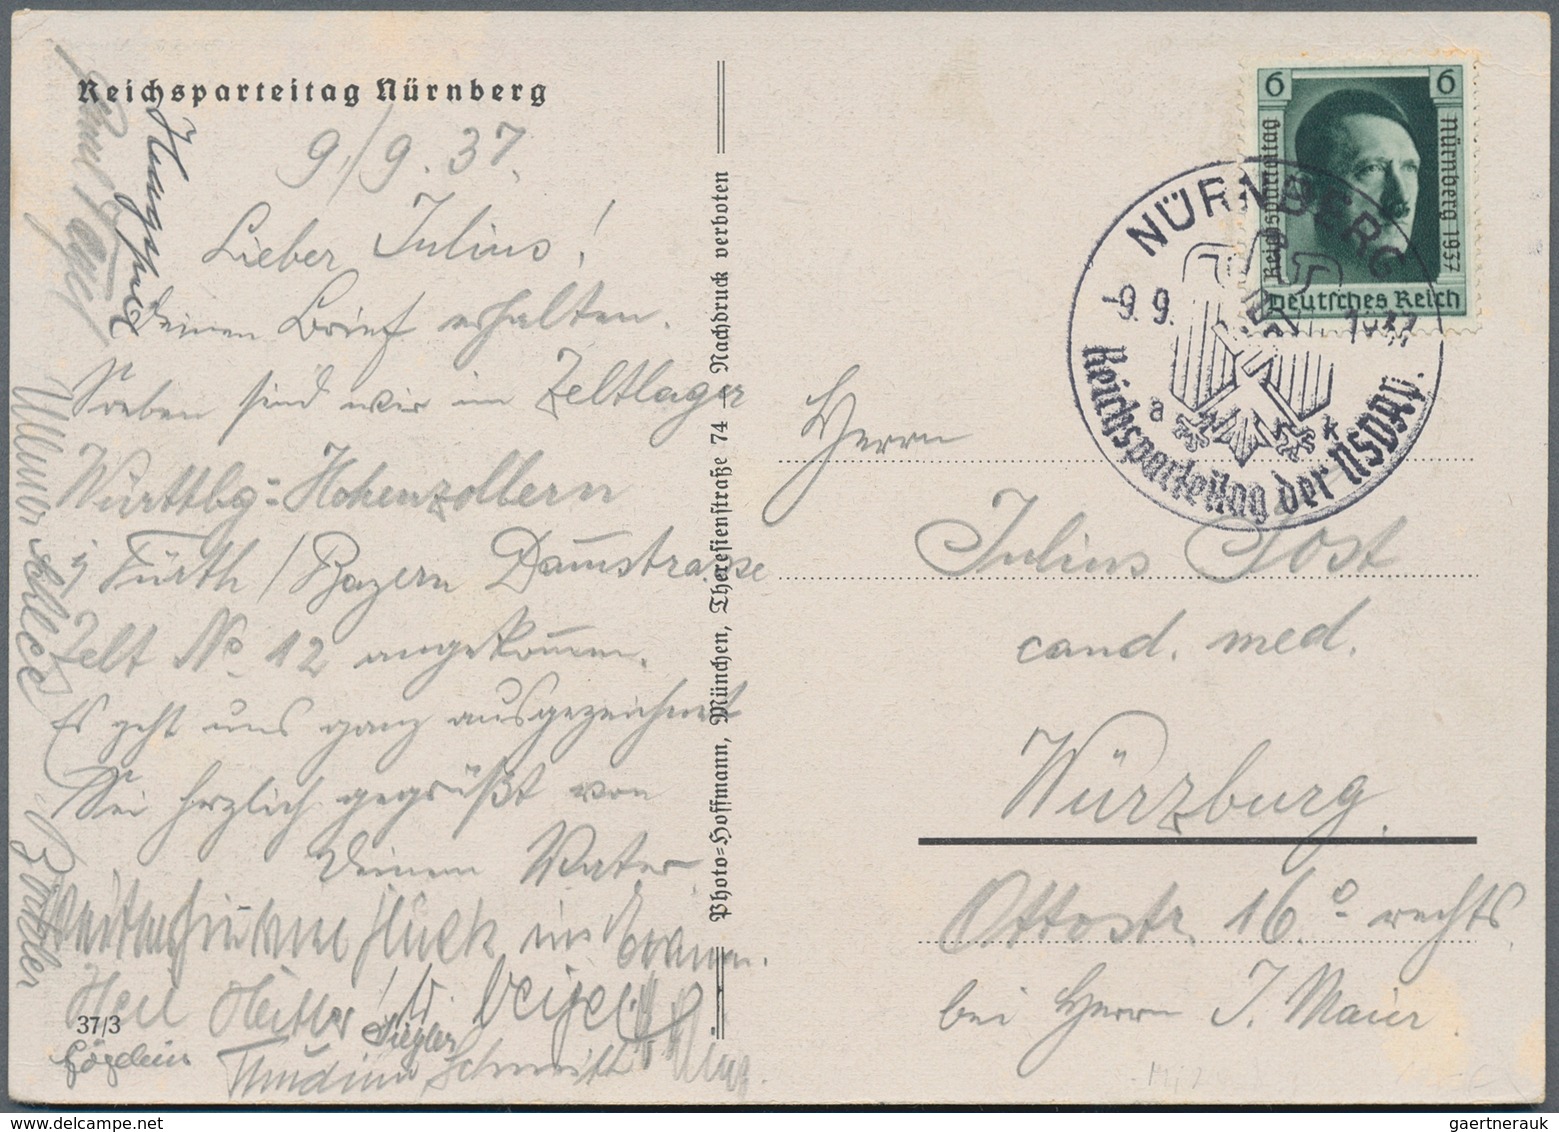 Reichsparteitag Nürnberg
9./9. 37.
Lieber Julius!
Deinen Brief erhalten.
Soeben sind wir im Zeltlager
Württbg-Hohenzollern
i/ Fürth / Bayern Dam̅strasse
Zelt No 12 angekom̅en.
Es geht uns ganz ausgezeichnet
Sei herzlich gegrüßt von
Deinem Vater.
Glück im Exam̅en.
Heil Hitler!
Ziegler
Schmidt
37/3
Photo=Hoffmann, München, Theresienstraße 74 — Nachdruck verboten
6 6
Reichsparteitag
Nürnberg 1937
Deutsches Reich
NÜRNBERG
-9.9. 1937
a k
Reichsparteitag der NSDAP.
Herrn
Julius Jost
cand. med.
Würzburg.
Ottostr. 16.o rechts
bei Herrn J. Maier.
gaertnerauk